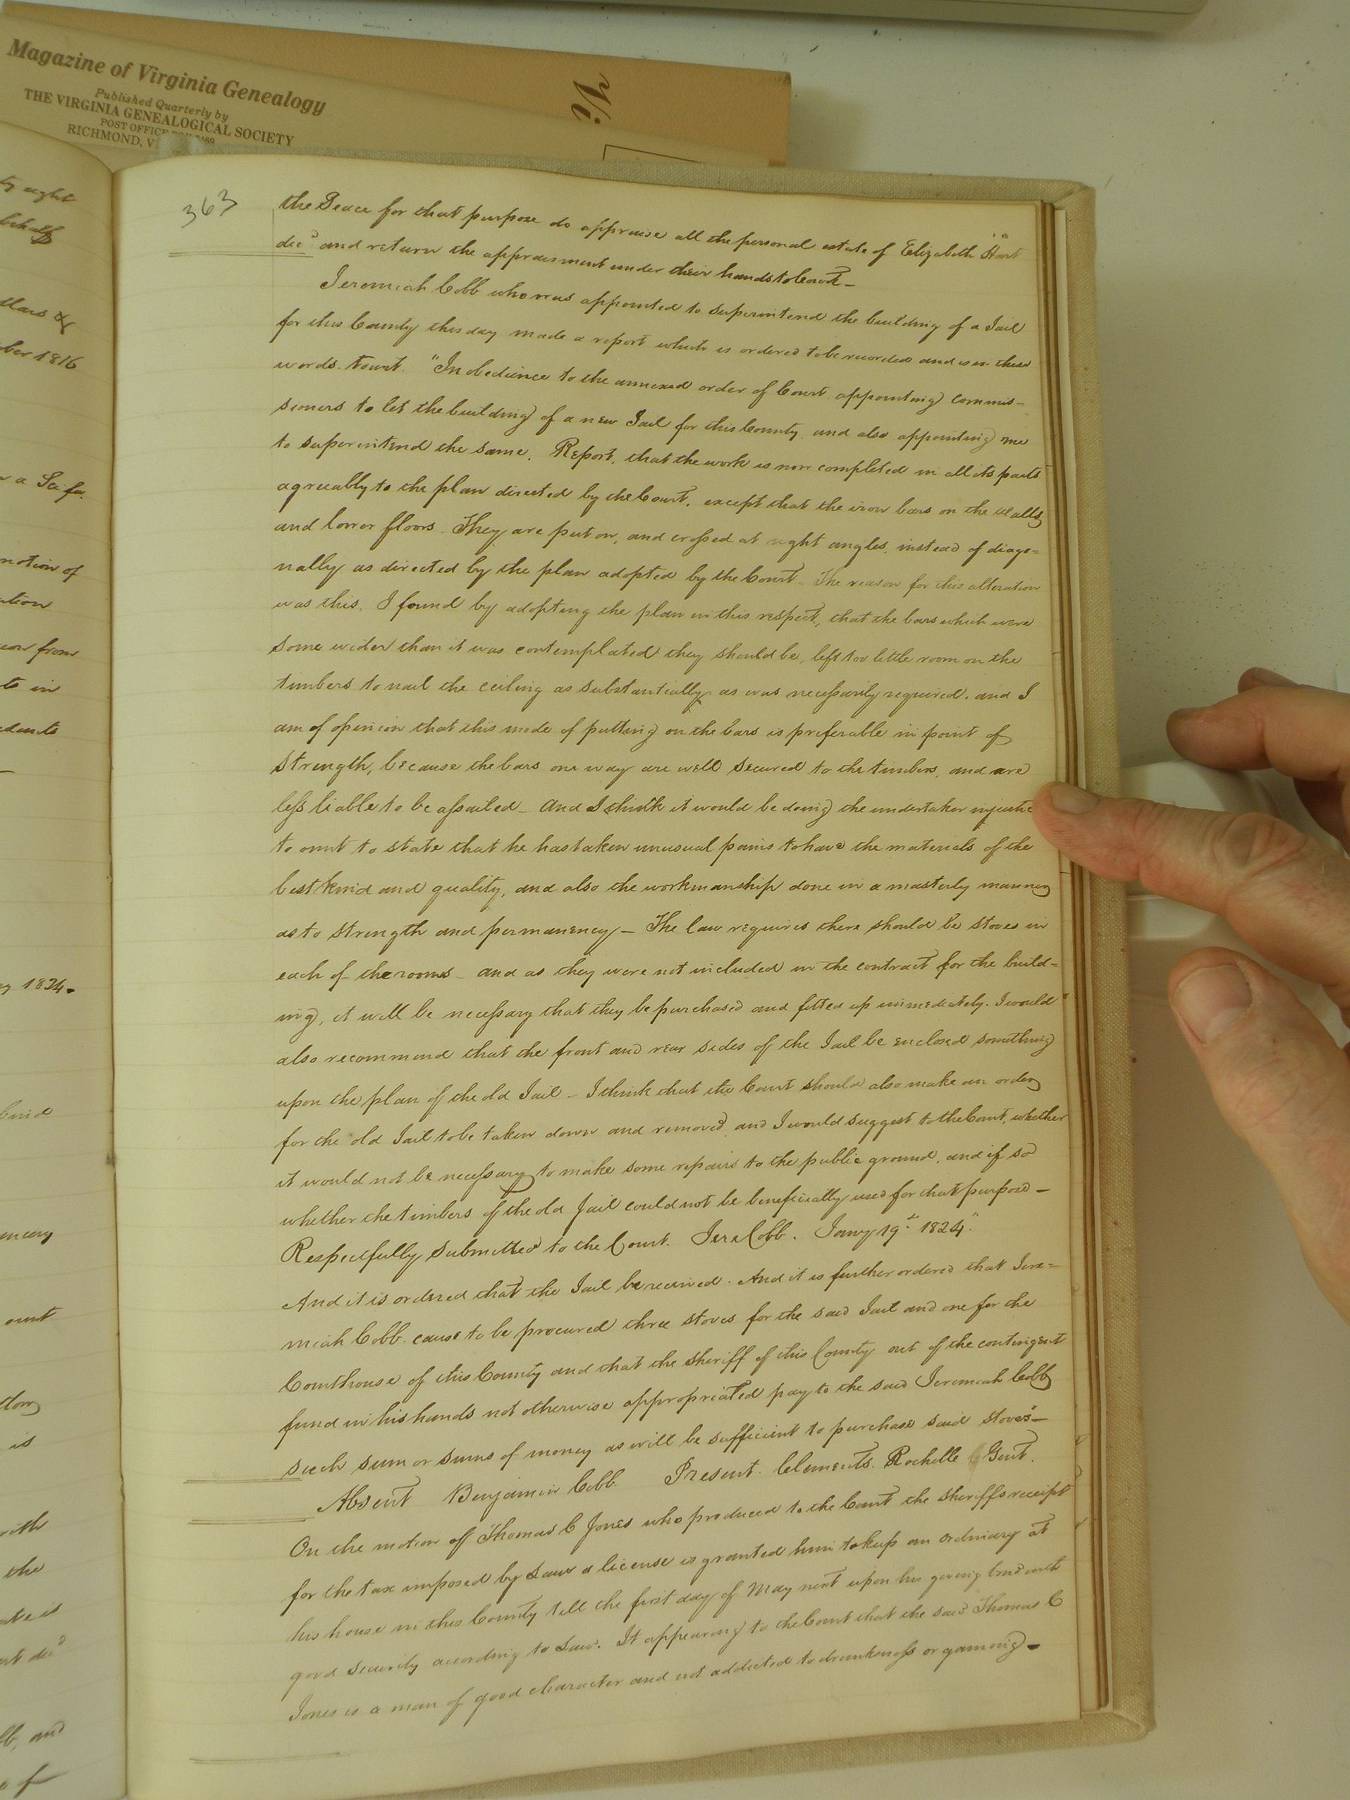 Magazine of Virginia Genealogy
Published Quarterly by
THE VIRGINIA GENEALOGICAL SOCIETY
POST OFFICE
RICHMOND, V
Vi
ty eight
behalf
llars &
ber 1816
a Sci fa.
motion of
ation
from
in
1824.
ount
is
with
the
and
of
363
the Peace for that purpose do appraise all the personal estate of Elizabeth Hart
decd and return the appraisment under their hands to Court—
Jeremiah Cobb who was appointed to superintend the building of a Jail
for this County this day made a report which is ordered to be recorded and is in these
words towit. "In obedience to the annexed order of Court appointing commis-
sioners to let the building of a new Jail for this County and also appointing me
to superintend the same, Report, that the work is now completed in all its parts
agreeably to the plan directed by the Court, except that the iron bars on the walls
and lower floors. They are put on, and crossed at right angles, instead of diago=
nally as directed by the plan adopted by the Court. The reason for this alteration
was this. I found by adopting the plan in this respect, that the bars which were
some wider than it was contemplated they should be, left too little room on the
timbers to nail the ceiling as substantially as was necessarily required. and I
am of opinion that this mode of putting on the bars is preferable in point of
strength, because the bars one way are well secured to the timbers, and are
less liable to be assailed— And I think it would be doing the undertaker injustice
to omit to state that he has taken unusual pains to have the materials of the
best kind and quality, and also the workmanship done in a masterly manner
as to strength and permanency— The law requires there should be stoves in
each of the rooms— and as they were not included in the contract for the build=
ing, it will be necessary that they be purchased and fitted up immediately. I would
also recommend that the front and rear sides of the Jail be enclosed something
upon the plan of the old Jail— I think that the Court should also make an order
for the old Jail to be taken down and removed and I would suggest to the Court, whether
it would not be necessary to make some repairs to the public ground, and if so
whether the timbers of the old Jail could not be beneficially used for that purpose—
Respectfully submitted to the Court. Jere Cobb. Jany 19th 1824."
And it is ordered that the Jail be received. And it is further ordered that Jere=
miah Cobb cause to be procured three stoves for the said Jail and one for the
Courthouse of this County and that the sheriff of this County out of the contingent
fund in his hands not otherwise appropriated pay to the said Jeremiah Cobb
such sum or sums of money as will be sufficient to purchase said stoves—
Absent Benjamin Cobb Present Clements Rochelle Gent.
On the motion of Thomas C Jones who produced to the Court the Sheriffs receipt
for the tax imposed by Law a license is granted him to keep an ordinary at
his house in this County till the first day of May next upon his giving bond with
good security according to Law. It appearing to the Court that the said Thomas C
Jones is a man of good character and not addicted to drunkeness or gaming—